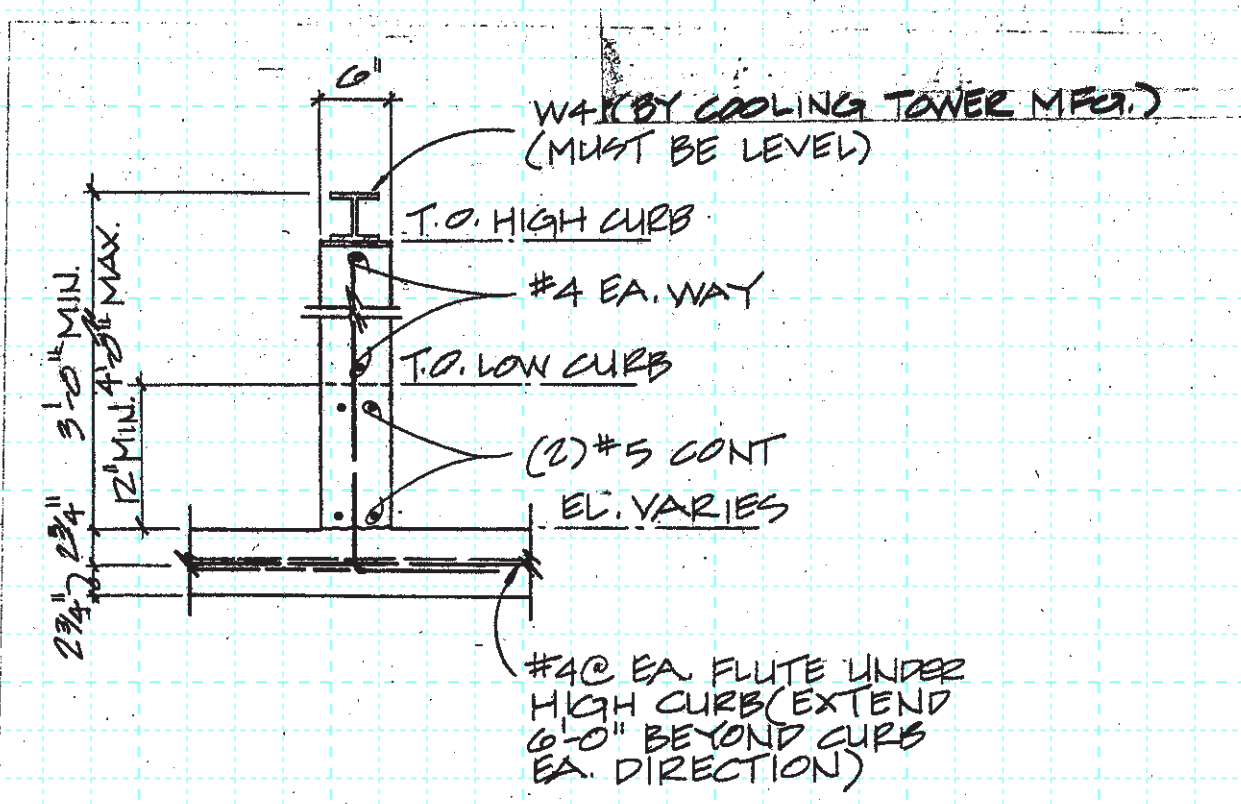 6"
W4 (BY COOLING TOWER MFG.)
(MUST BE LEVEL)
T.O. HIGH CURB
#4 EA. WAY
T.O. LOW CURB
(2) #5 CONT
EL. VARIES
3'-0" MIN.
MAX.
12" MIN.
2¾"
2¾"
#4@ EA. FLUTE UNDER
HIGH CURB (EXTEND
6'-0" BEYOND CURB
EA. DIRECTION)